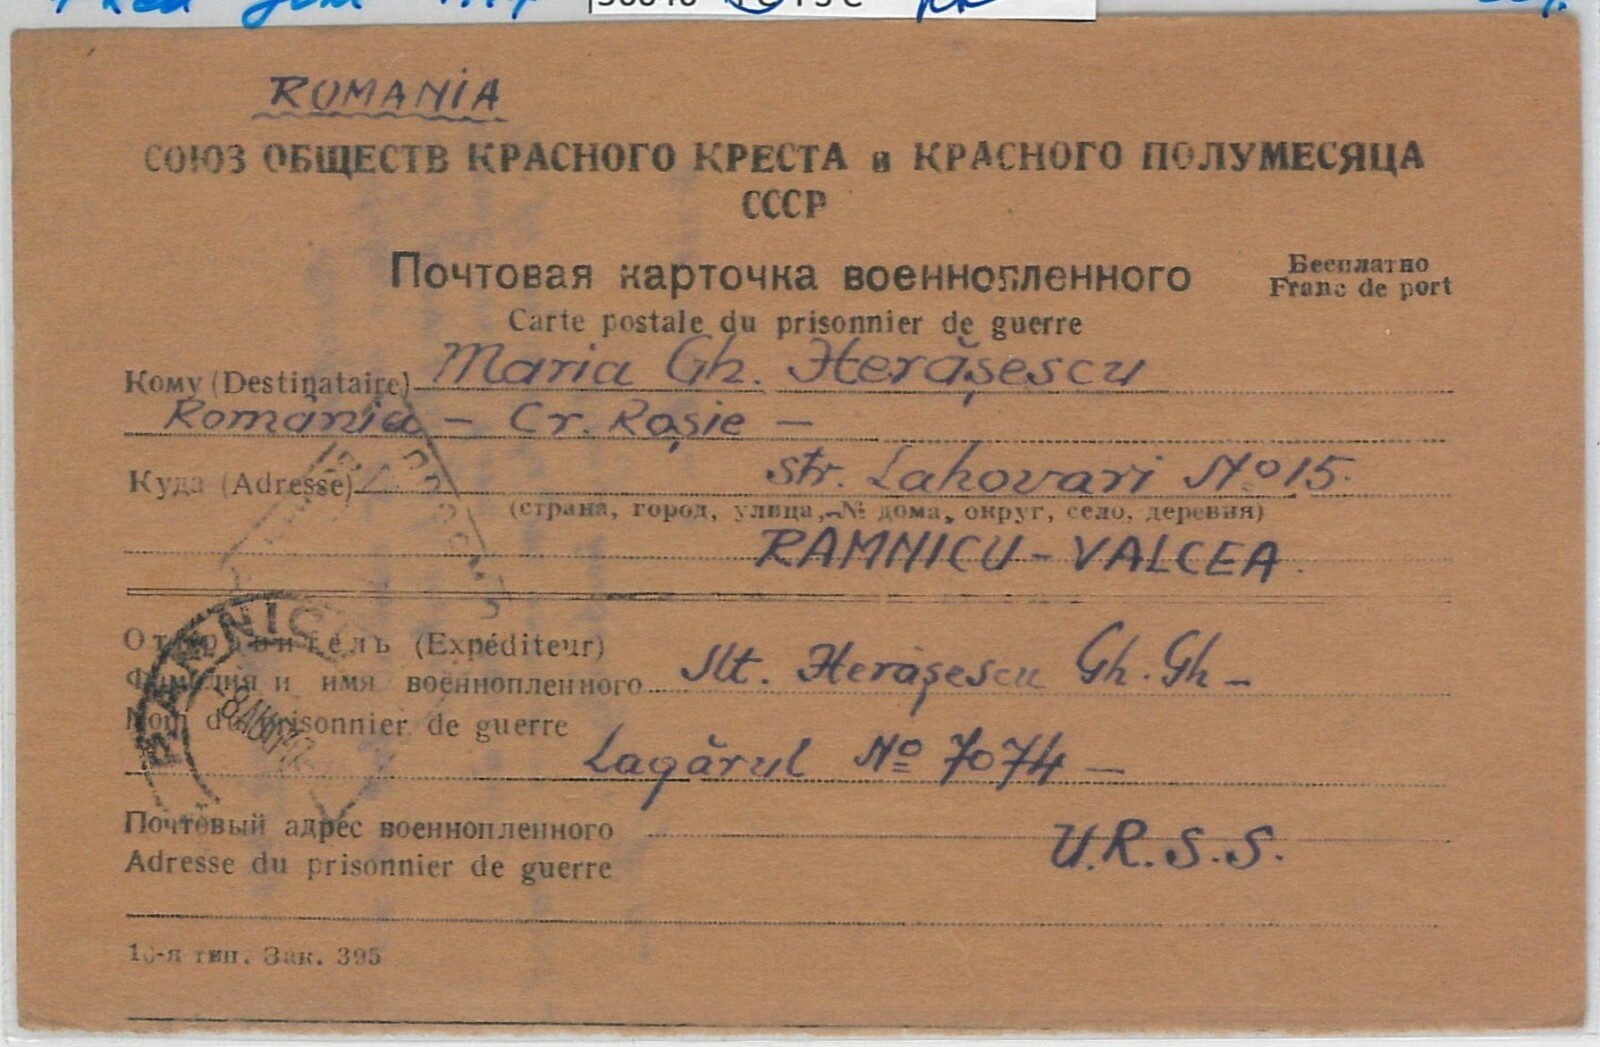 ROMANIA
СОЮЗ ОБЩЕСТВ КРАСНОГО КРЕСТА и КРАСНОГО ПОЛУМЕСЯЦА
СССР
Почтовая карточка военнопленного
Бесплатно
Franc de port
Carte postale du prisonnier de guerre
Кому (Destinataire) Maria Gh. Herășescu
România - Cr. Roșie -
Куда (Adresse) str. Lahovari No 15.
(страна, город, улица, № дома, округ, село, деревня)
RAMNICU-VALCEA.
Отправитель (Expéditeur)
Фамилия и имя военнопленного Slt. Herășescu Gh. Gh -
Nom du prisonnier de guerre
Lagărul No 7074 -
Почтовый адрес военнопленного
U.R.S.S.
Adresse du prisonnier de guerre
16-я тип. Зак. 395